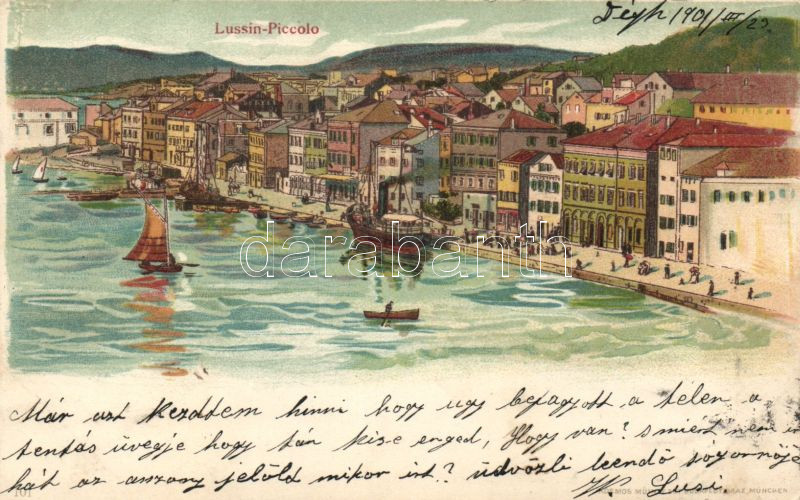 Lussin-Piccolo
Dégh 1901/III/23.
darabanth
Már azt kezdtem hinni hogy ugy befagyott a télen a
tentás üvegje hogy tán ki se enged, Hogy van? s miért nem ir
hát az asszony jelöld mikor irt? üdvözli leendő
W. Lusi.
101
MÜNCHEN